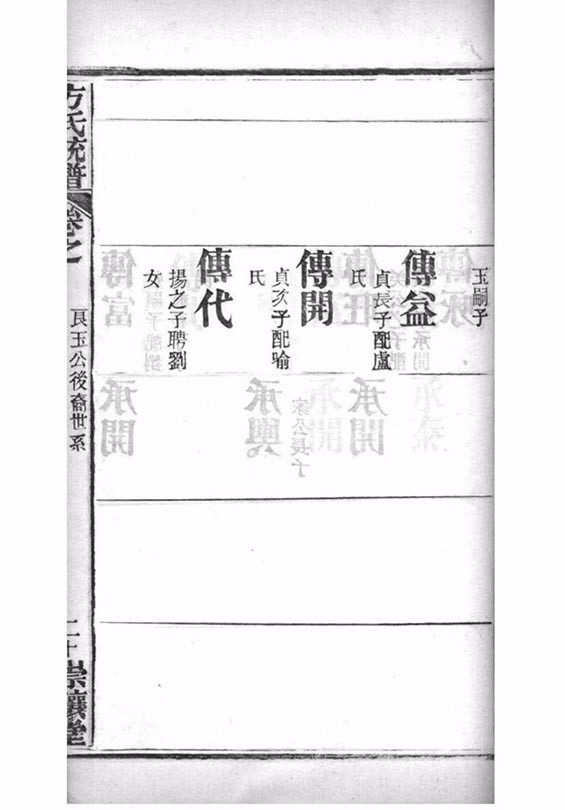 玉嗣子
傳益
貞長子配盧
氏
傳開
貞次子配喻
氏
傳代
揚之子聘劉
女
方氏統譜
卷之
良玉公後裔世系
二十
崇讓堂